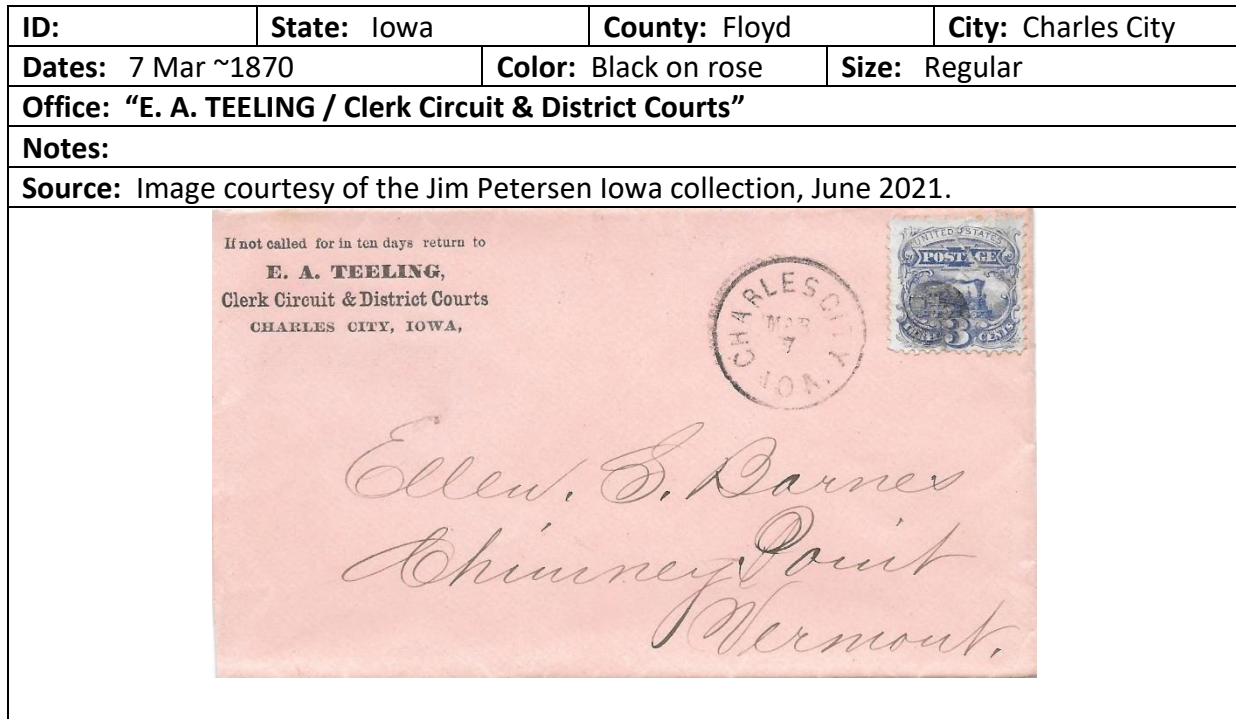 ID: State: Iowa County: Floyd City: Charles City
Dates: 7 Mar ~1870 Color: Black on rose Size: Regular
Office: “E. A. TEELING / Clerk Circuit & District Courts”
Notes:
Source: Image courtesy of the Jim Petersen Iowa collection, June 2021.
If not called for in ten days return to
E. A. TEELING,
Clerk Circuit & District Courts
CHARLES CITY, IOWA,
CHARLES CITY,
MAR
7
IOWA
UNITED STATES
POSTAGE
THREE 3 CENTS
Ellen. S. Barnes
Chimney Point
Vermont.